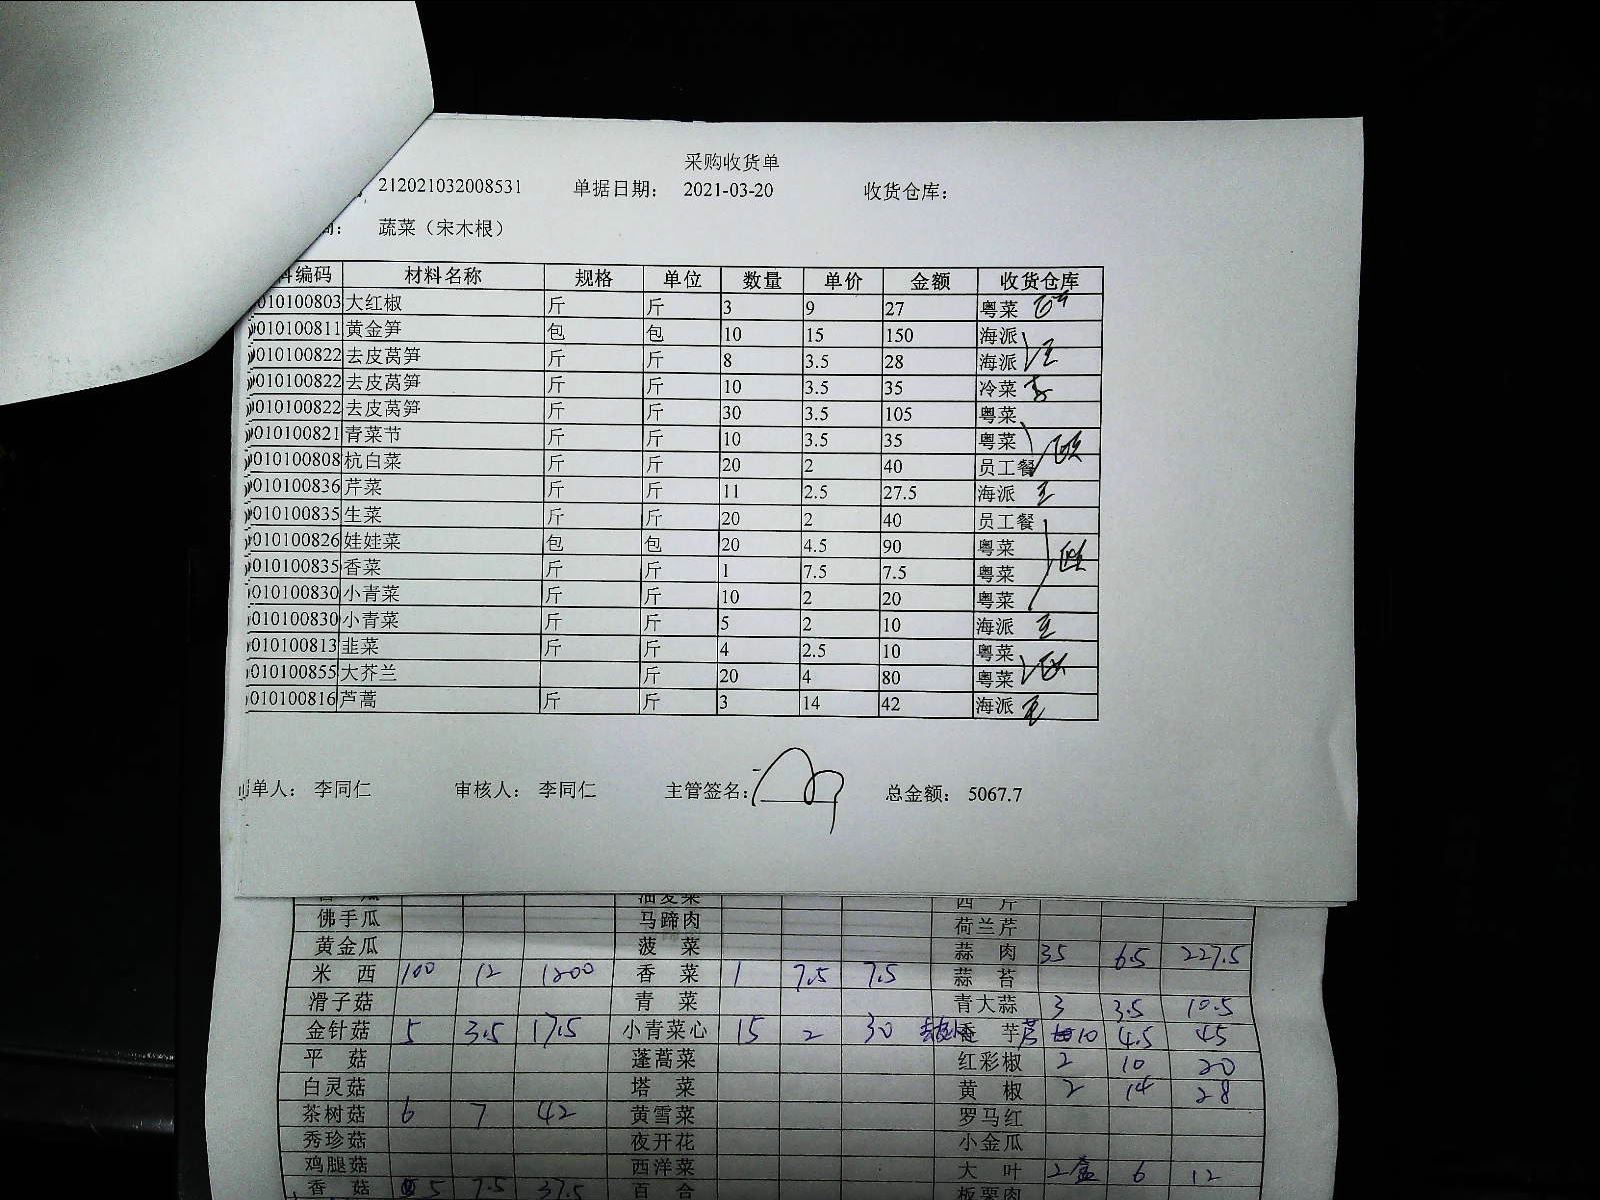 采购收货单
212021032008531 单据日期： 2021-03-20 收货仓库：
蔬菜（宋木根）
编码 材料名称 规格 单位 数量 单价 金额 收货仓库
010100803 大红椒 斤 斤 3 9 27 粤菜
010100811 黄金笋 包 包 10 15 150 海派
010100822 去皮莴笋 斤 斤 8 3.5 28 海派
010100822 去皮莴笋 斤 斤 10 3.5 35 冷菜
010100822 去皮莴笋 斤 斤 30 3.5 105 粤菜
010100821 青菜节 斤 斤 10 3.5 35 粤菜
010100808 杭白菜 斤 斤 20 2 40 员工餐
010100836 芹菜 斤 斤 11 2.5 27.5 海派
010100835 生菜 斤 斤 20 2 40 员工餐
010100826 娃娃菜 包 包 20 4.5 90 粤菜
010100835 香菜 斤 斤 1 7.5 7.5 粤菜
010100830 小青菜 斤 斤 10 2 20 粤菜
010100830 小青菜 斤 斤 5 2 10 海派
010100813 韭菜 斤 斤 4 2.5 10 粤菜
010100855 大芥兰 斤 20 4 80 粤菜
010100816 芦蒿 斤 斤 3 14 42 海派
单人： 李同仁 审核人： 李同仁 主管签名： 总金额： 5067.7
油麦菜 西 芹
佛手瓜 马蹄肉 荷兰芹
黄金瓜 菠 菜 蒜 肉 35 6.5 227.5
米 西 100 12 1200 香 菜 1 7.5 7.5 蒜 苔
滑子菇 青 菜 青大蒜 3 3.5 10.5
金针菇 5 3.5 17.5 小青菜心 15 2 30 香 芋 10 4.5 45
平 菇 蓬蒿菜 红彩椒 2 10 20
白灵菇 塔 菜 黄 椒 2 14 28
茶树菇 6 7 42 黄雪菜 罗马红
秀珍菇 夜开花 小金瓜
鸡腿菇 西洋菜 大 叶 2盒 6 12
香 菇 5 7.5 37.5 百 合 板栗肉